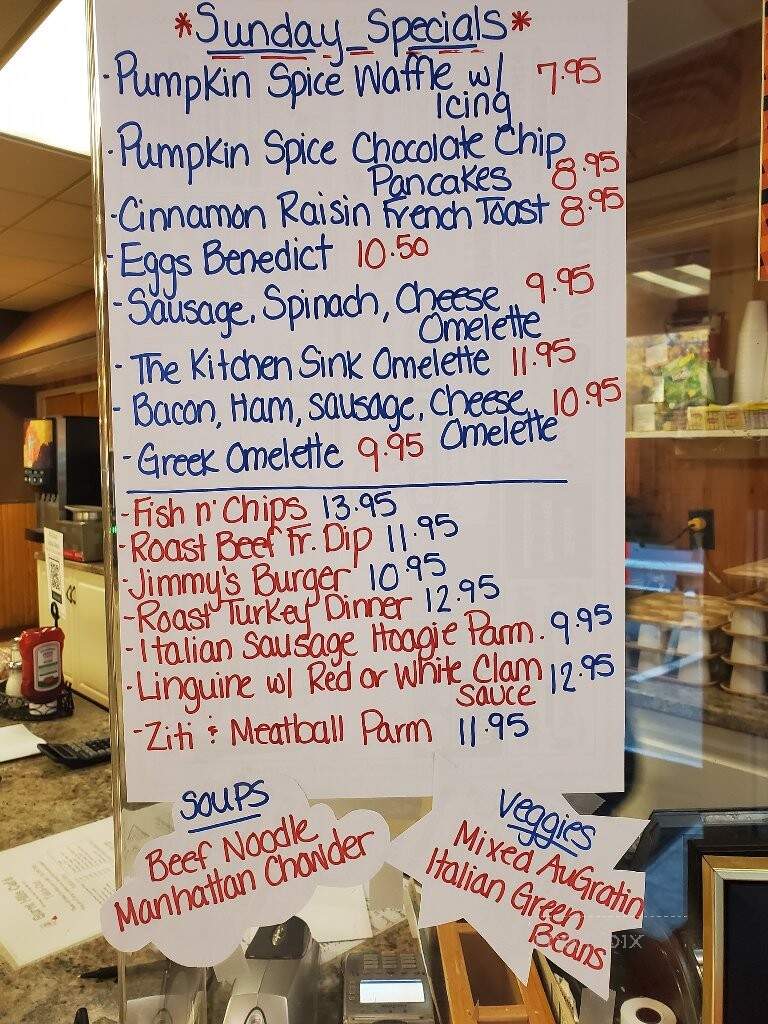 *Sunday Specials*
·Pumpkin Spice Waffle w/ 7.95
Icing
·Pumpkin Spice Chocolate Chip
Pancakes 8.95
·Cinnamon Raisin French Toast 8.95
·Eggs Benedict 10.50
·Sausage, Spinach, Cheese 9.95
Omelette
·The Kitchen Sink Omelette 11.95
·Bacon, Ham, Sausage, Cheese 10.95
Omelette
-Greek Omelette 9.95
-Fish n' Chips 13.95
-Roast Beef Fr. Dip 11.95
-Jimmy's Burger 10.95
-Roast Turkey Dinner 12.95
-Italian Sausage Hoagie Parm. 9.95
-Linguine w/ Red or White Clam
Sauce 12.95
-Ziti & Meatball Parm 11.95
Soups
Beef Noodle
Manhattan Chowder
Veggies
Mixed AuGratin
Italian Green
Beans